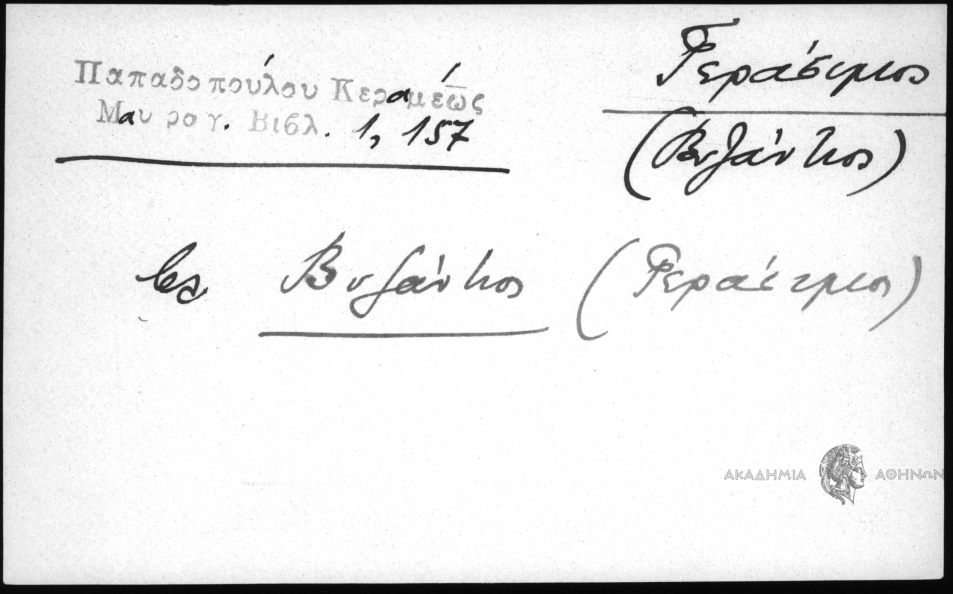 Παπαδοπούλου Κεραμέως
Μαυρογ. Βιβλ. 1, 157
Γεράσιμος
(Βυζάντιος)
βλ. Βυζάντιος (Γεράσιμος)
ΑΚΑΔΗΜΙΑ ΑΘΗΝΩΝ